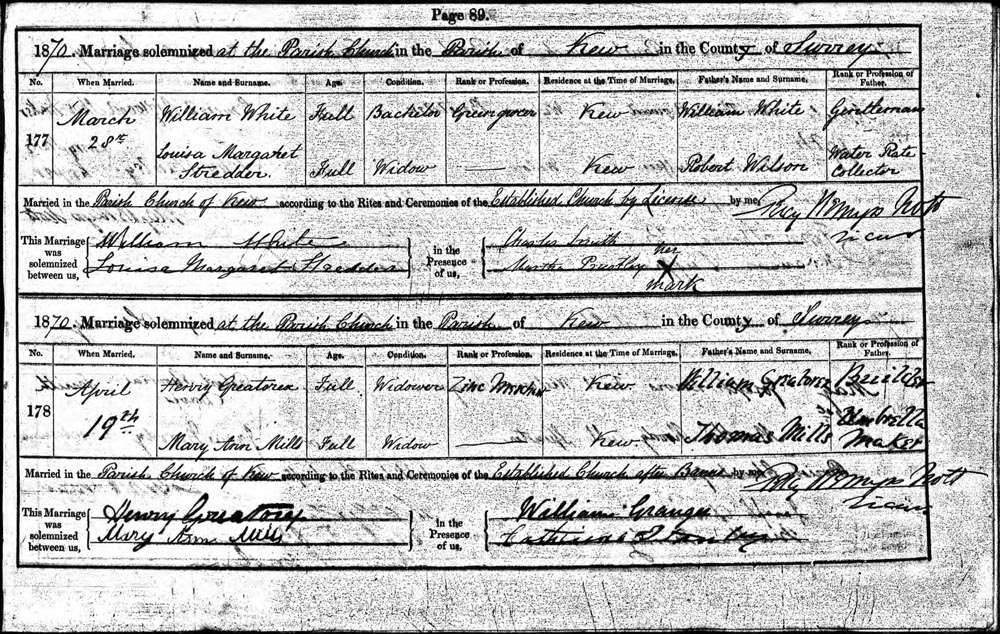 Page 89.
1870. Marriage solemnized at the Parish Church in the Parish of Kew in the County of Surrey
No. When Married. Name and Surname. Age. Condition. Rank or Profession. Residence at the Time of Marriage. Father's Name and Surname. Rank or Profession of Father.
177 March 28th William White Full Bachelor Greengrocer Kew William White Gentleman
Louisa Margaret Stredder Full Widow — Kew Robert Wilson Water Rate Collector
Married in the Parish Church of Kew according to the Rites and Ceremonies of the Established Church by License by me, Vicar
This Marriage was solemnized between us, William White
Louisa Margaret Stredder
in the Presence of us, Charles Smith
Martha Priestley her X mark
1870. Marriage solemnized at the Parish Church in the Parish of Kew in the County of Surrey
No. When Married. Name and Surname. Age. Condition. Rank or Profession. Residence at the Time of Marriage. Father's Name and Surname. Rank or Profession of Father.
178 April 19th Henry Greatorex Full Widower Zinc Worker Kew William Greatorex Builder
Mary Ann Mills Full Widow — Kew Thomas Mills Umbrella Maker
Married in the Parish Church of Kew according to the Rites and Ceremonies of the Established Church after Banns by me, Vicar
This Marriage was solemnized between us, Henry Greatorex
Mary Ann Mills
in the Presence of us, William Granger
Catherine